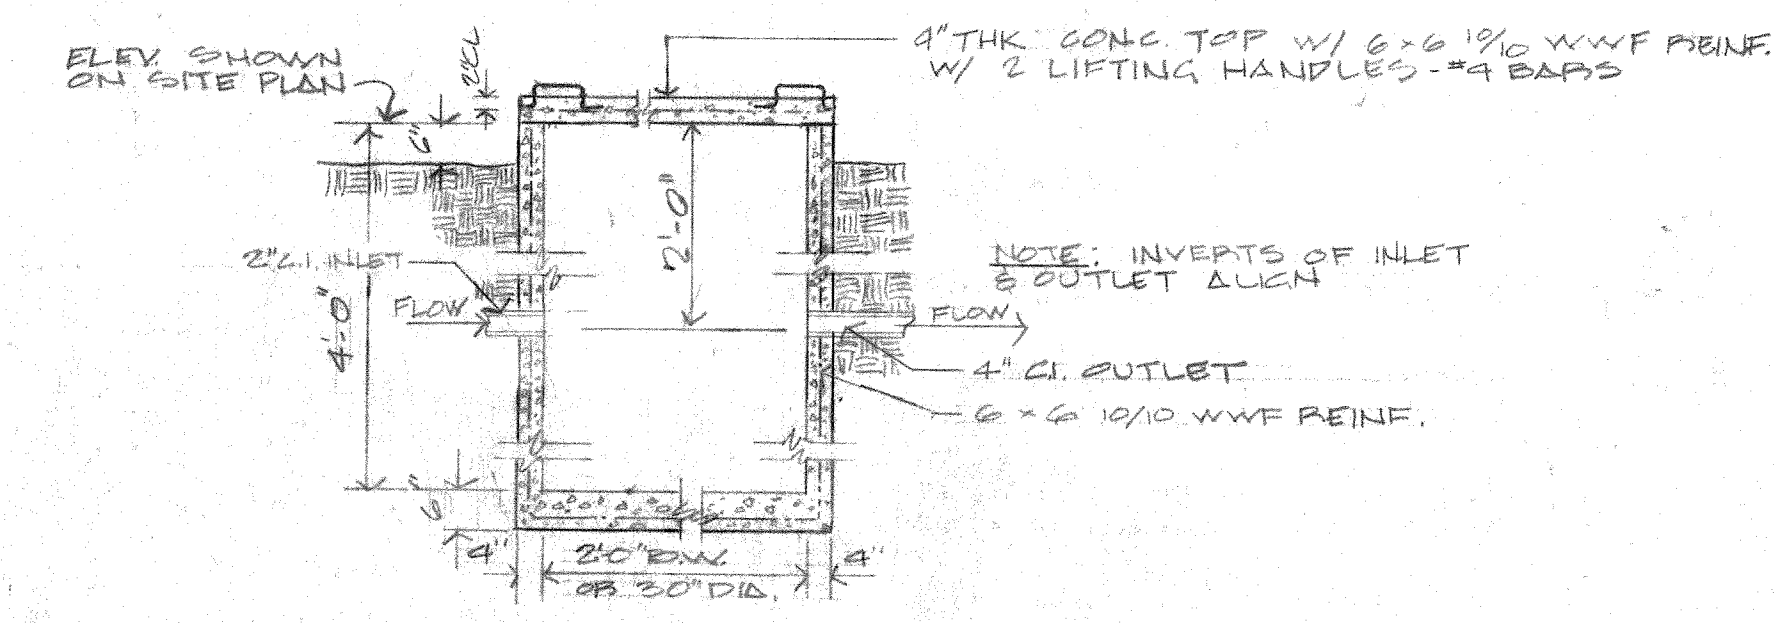 ELEV. SHOWN
ON SITE PLAN
2"CL
4" THK CONC. TOP W/ 6×6 10/10 WWF REINF.
W/ 2 LIFTING HANDLES - #4 BARS
6"
2'-0"
4'-0"
2" C.I. INLET
FLOW
NOTE: INVERTS OF INLET
& OUTLET ALIGN
FLOW
4" C.I. OUTLET
6 × 6 10/10 WWF REINF.
6"
4"
2'-0"
4"
OR 3'0" DIA.